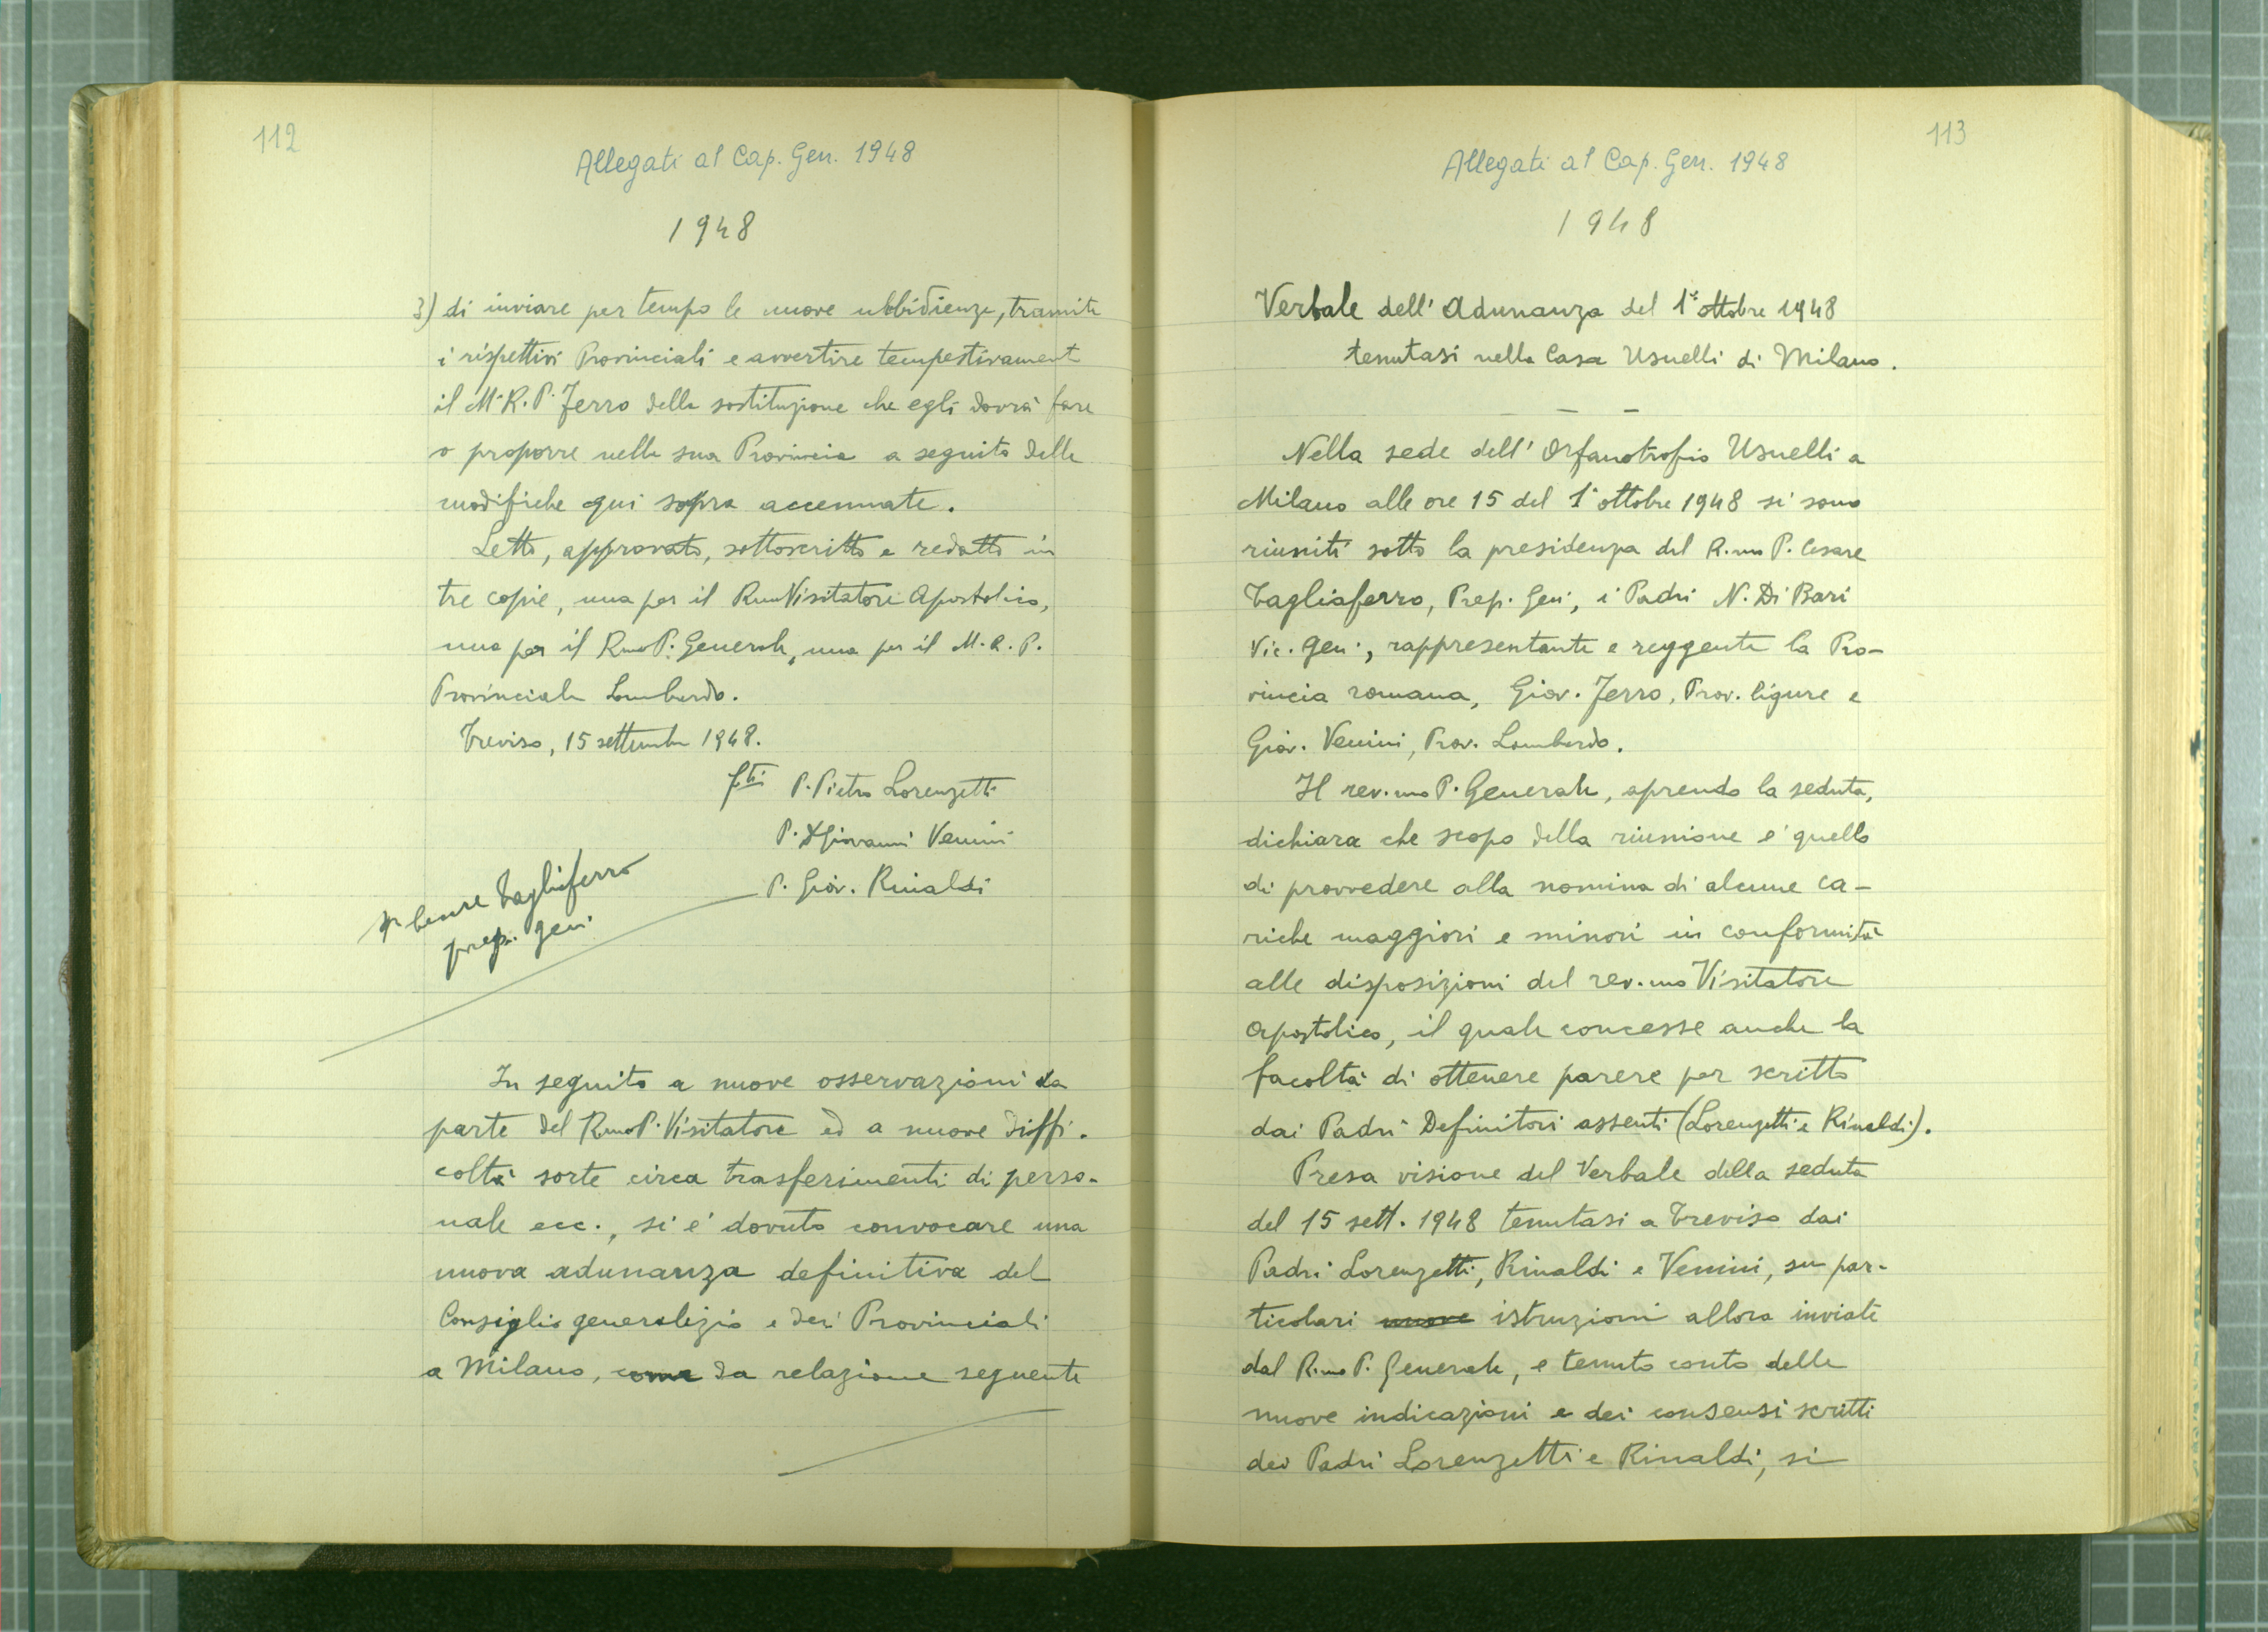 112
Allegati al Cap. Gen. 1948
1948
3) di inviare per tempo le nuove ubbidienze, tramite
i rispettivi Provinciali e avvertire tempestivamente
il M. R. P. Ferro della sostituzione che egli dovrà fare
o proporre nella sua Provincia a seguito delle
modifiche qui sopra accennate.
Letto, approvato, sottoscritto e redatto in
tre copie, una per il Rmo Visitatore Apostolico,
una per il Rmo P. Generale, una per il M. R. P.
Provinciale Lombardo.
Treviso, 15 settembre 1948.
f.ti P. Pietro Lorenzetti
P. Giovanni Venini
P. Giov. Rinaldi
P. Cesare Tagliaferro
prep. gen.
In seguito a nuove osservazioni da
parte del Rmo P. Visitatore ed a nuove diffi-
coltà sorte circa trasferimenti di perso-
nale ecc., si è dovuto convocare una
nuova adunanza definitiva del
Consiglio generalizio e dei Provinciali
a Milano, come da relazione seguente
113
Allegati al Cap. Gen. 1948
1948
Verbale dell' Adunanza del 1° ottobre 1948
tenutasi nella Casa Usuelli di Milano.
Nella sede dell' Orfanotrofio Usuelli a
Milano alle ore 15 del 1° ottobre 1948 si sono
riuniti sotto la presidenza del R.mo P. Cesare
Tagliaferro, Prep. Gen., i Padri N. Di Bari
Vic. Gen., rappresentante e reggente la Pro-
vincia romana, Giov. Ferro, Prov. ligure e
Giov. Venini, Prov. Lombardo.
Il rev.mo P. Generale, aprendo la seduta,
dichiara che scopo della riunione è quello
di provvedere alla nomina di alcune ca-
riche maggiori e minori in conformità
alle disposizioni del rev.mo Visitatore
Apostolico, il quale concesse anche la
facoltà di ottenere parere per scritto
dai Padri Definitori assenti (Lorenzetti e Rinaldi).
Presa visione del Verbale della seduta
del 15 sett. 1948 tenutasi a Treviso dai
Padri Lorenzetti, Rinaldi e Venini, su par-
ticolari nuove istruzioni allora inviate
dal R.mo P. Generale, e tenuto conto delle
nuove indicazioni e dei consensi scritti
dei Padri Lorenzetti e Rinaldi, si